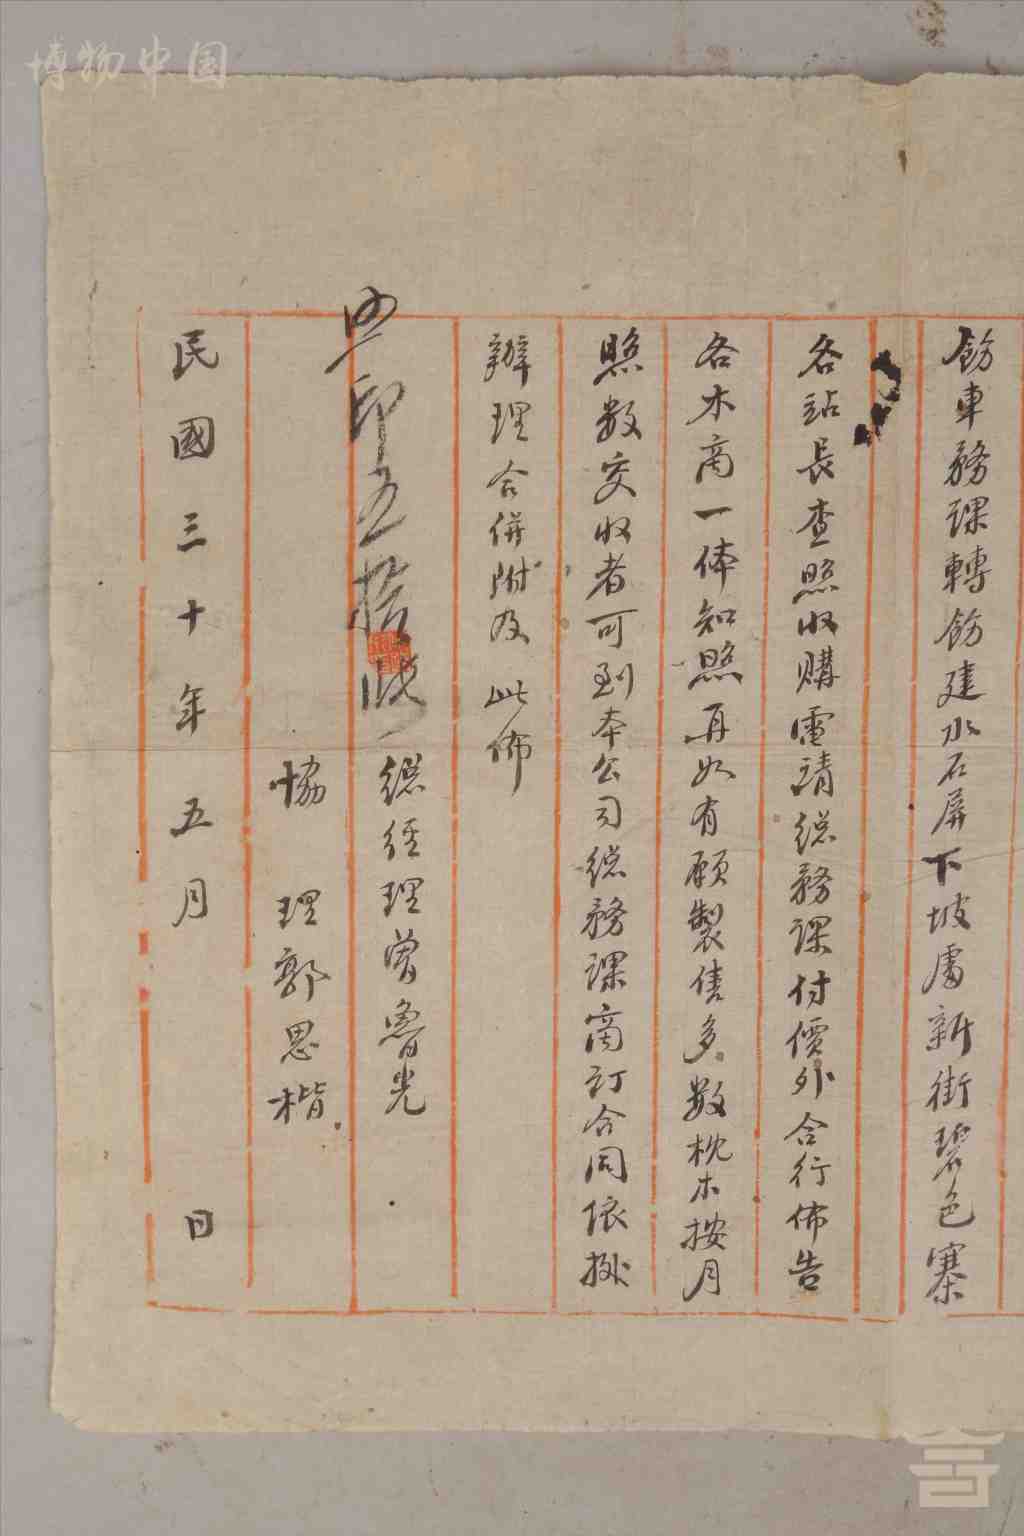 飭車務課轉飭建水石屏下坡處新街碧色寨
各站長查照收購電請總務課付價外合行佈告
各木商一体知照再如有願製售多数枕木按月
照数交收者可到本公司總務課商訂合同依據
辦理合併附及此佈
照印五拾張
總經理曾魯光
協理郭思楷
民國三十年五月 日
博物中国